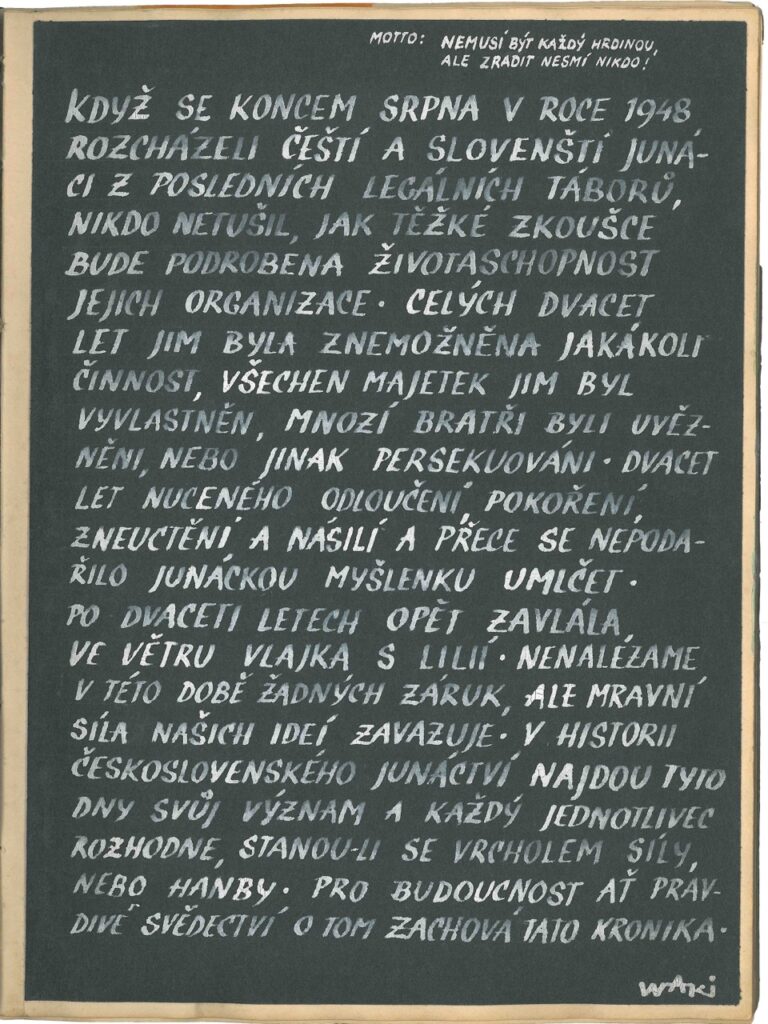 MOTTO: NEMUSÍ BÝT KAŽDÝ HRDINOU,
ALE ZRADIT NESMÍ NIKDO!
KDYŽ SE KONCEM SRPNA V ROCE 1948
ROZCHÁZELI ČEŠTÍ A SLOVENŠTÍ JUNÁ-
CI Z POSLEDNÍCH LEGÁLNÍCH TÁBORŮ,
NIKDO NETUŠIL, JAK TĚŽKÉ ZKOUŠCE
BUDE PODROBENA ŽIVOTASCHOPNOST
JEJICH ORGANIZACE. CELÝCH DVACET
LET JIM BYLA ZNEMOŽNĚNA JAKÁKOLI
ČINNOST, VŠECHEN MAJETEK JIM BYL
VYVLASTNĚN, MNOZÍ BRATŘI BYLI UVĚZ-
NĚNI, NEBO JINAK PERSEKUOVÁNI. DVACET
LET NUCENÉHO ODLOUČENÍ, POKOŘENÍ,
ZNEUCTĚNÍ A NÁSILÍ A PŘECE SE NEPODA-
ŘILO JUNÁCKOU MYŠLENKU UMLČET.
PO DVACETI LETECH OPĚT ZAVLÁLA
VE VĚTRU VLAJKA S LILIÍ. NENALÉZAME
V TÉTO DOBĚ ŽÁDNÝCH ZÁRUK, ALE MRAVNÍ
SÍLA NAŠICH IDEÍ ZAVAZUJE. V HISTORII
ČESKOSLOVENSKÉHO JUNÁCTVÍ NAJDOU TYTO
DNY SVŮJ VÝZNAM A KAŽDÝ JEDNOTLIVEC
ROZHODNE, STANOU-LI SE VRCHOLEM SÍLY,
NEBO HANBY. PRO BUDOUCNOST AŤ PRAV-
DIVÉ SVĚDECTVÍ O TOM ZACHOVÁ TATO KRONIKA.
WAKI